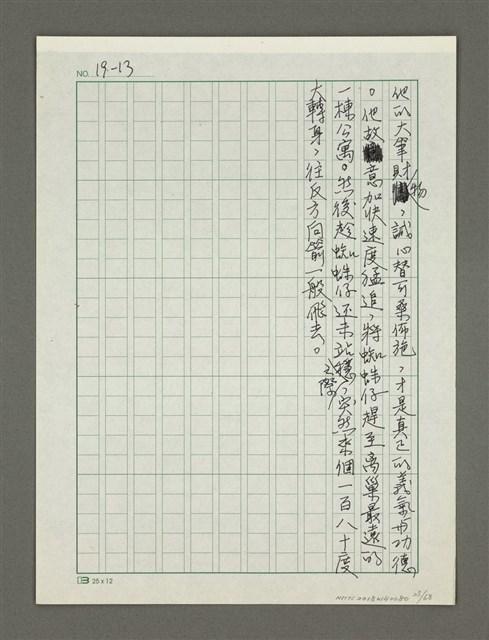 NO. 19-13
他以大筆財物，誠心替阿桑佈施，才是真正的義氣與功德
。他故意加快速度猛追，將蜘蛛仔趕至离巢最遠的
一棟公寓。然後趁蜘蛛仔还未站穩之際，突然來個一百八十度
大轉身，往反方向箭一般飛去。
25 x 12
28/68